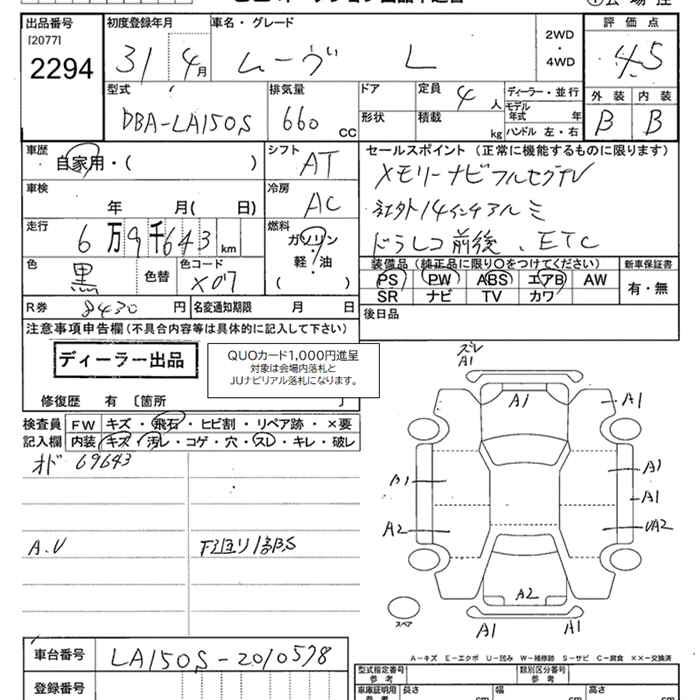 出品番号 [2077] 2294
初度登録年月 31 4月
車名・グレード ムーヴ L
2WD・4WD
評価点 4.5
外装 B 内装 B
型式 DBA-LA150S
排気量 660 cc
ドア
形状
定員 4人
積載 kg
ディーラー・並行
モデル年式 年
ハンドル 左・右
車歴 自家用・( )
シフト AT
セールスポイント (正常に機能するものに限ります)
メモリーナビフルセグTV
社外14インチアルミ
ドラレコ前後、ETC
車検 年 月( 日)
冷房 AC
走行 6万9千643km
燃料 ガソリン・軽・油 ( )
色 黒 色替
色コード X07
装備品 (純正品に限り○をつけてください)
PS PW ABS エアB AW
SR ナビ TV カワ
新車保証書 有・無
R券 8430円
名変通知期限 月 日
後日品
注意事項申告欄(不具合内容等は具体的に記入して下さい)
ディーラー出品
QUOカード1,000円進呈
対象は会場内落札と
JUナビリアル落札になります。
修復歴 有 〔箇所
検査員記入欄
FW キズ・飛石・ヒビ割・リペア跡・×要
内装 キズ・汚レ・コゲ・穴・スレ・キレ・破レ
オド 69643
A.U
下廻り部S
ズレ
A1
A1
A1
A1
A1
A1
A2
UA2
A2
A1
A1
スペア
A-キズ E-エクボ U-凹み W-補修跡 S-サビ C-腐食 ××-交換済
車台番号 LA150S-2010578
登録番号
型式指定番号 参考
類別区分番号 参考
車庫証明用 参考 長さ cm 幅 cm 高さ cm